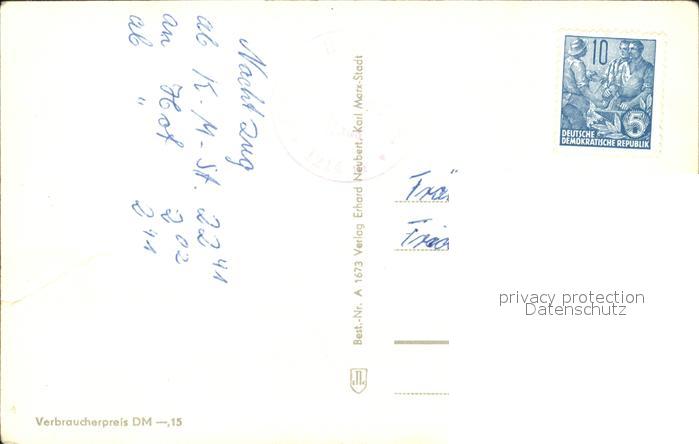 Nachtzug
ab K.-M.-St. 22 41
an Hof 2 02
ab " 2 41
Best.-Nr. A 1673 Verlag Erhard Neubert, Karl Marx-Stadt
10
5
DEUTSCHE
DEMOKRATISCHE REPUBLIK
privacy protection
Datenschutz
Verbraucherpreis DM —,15